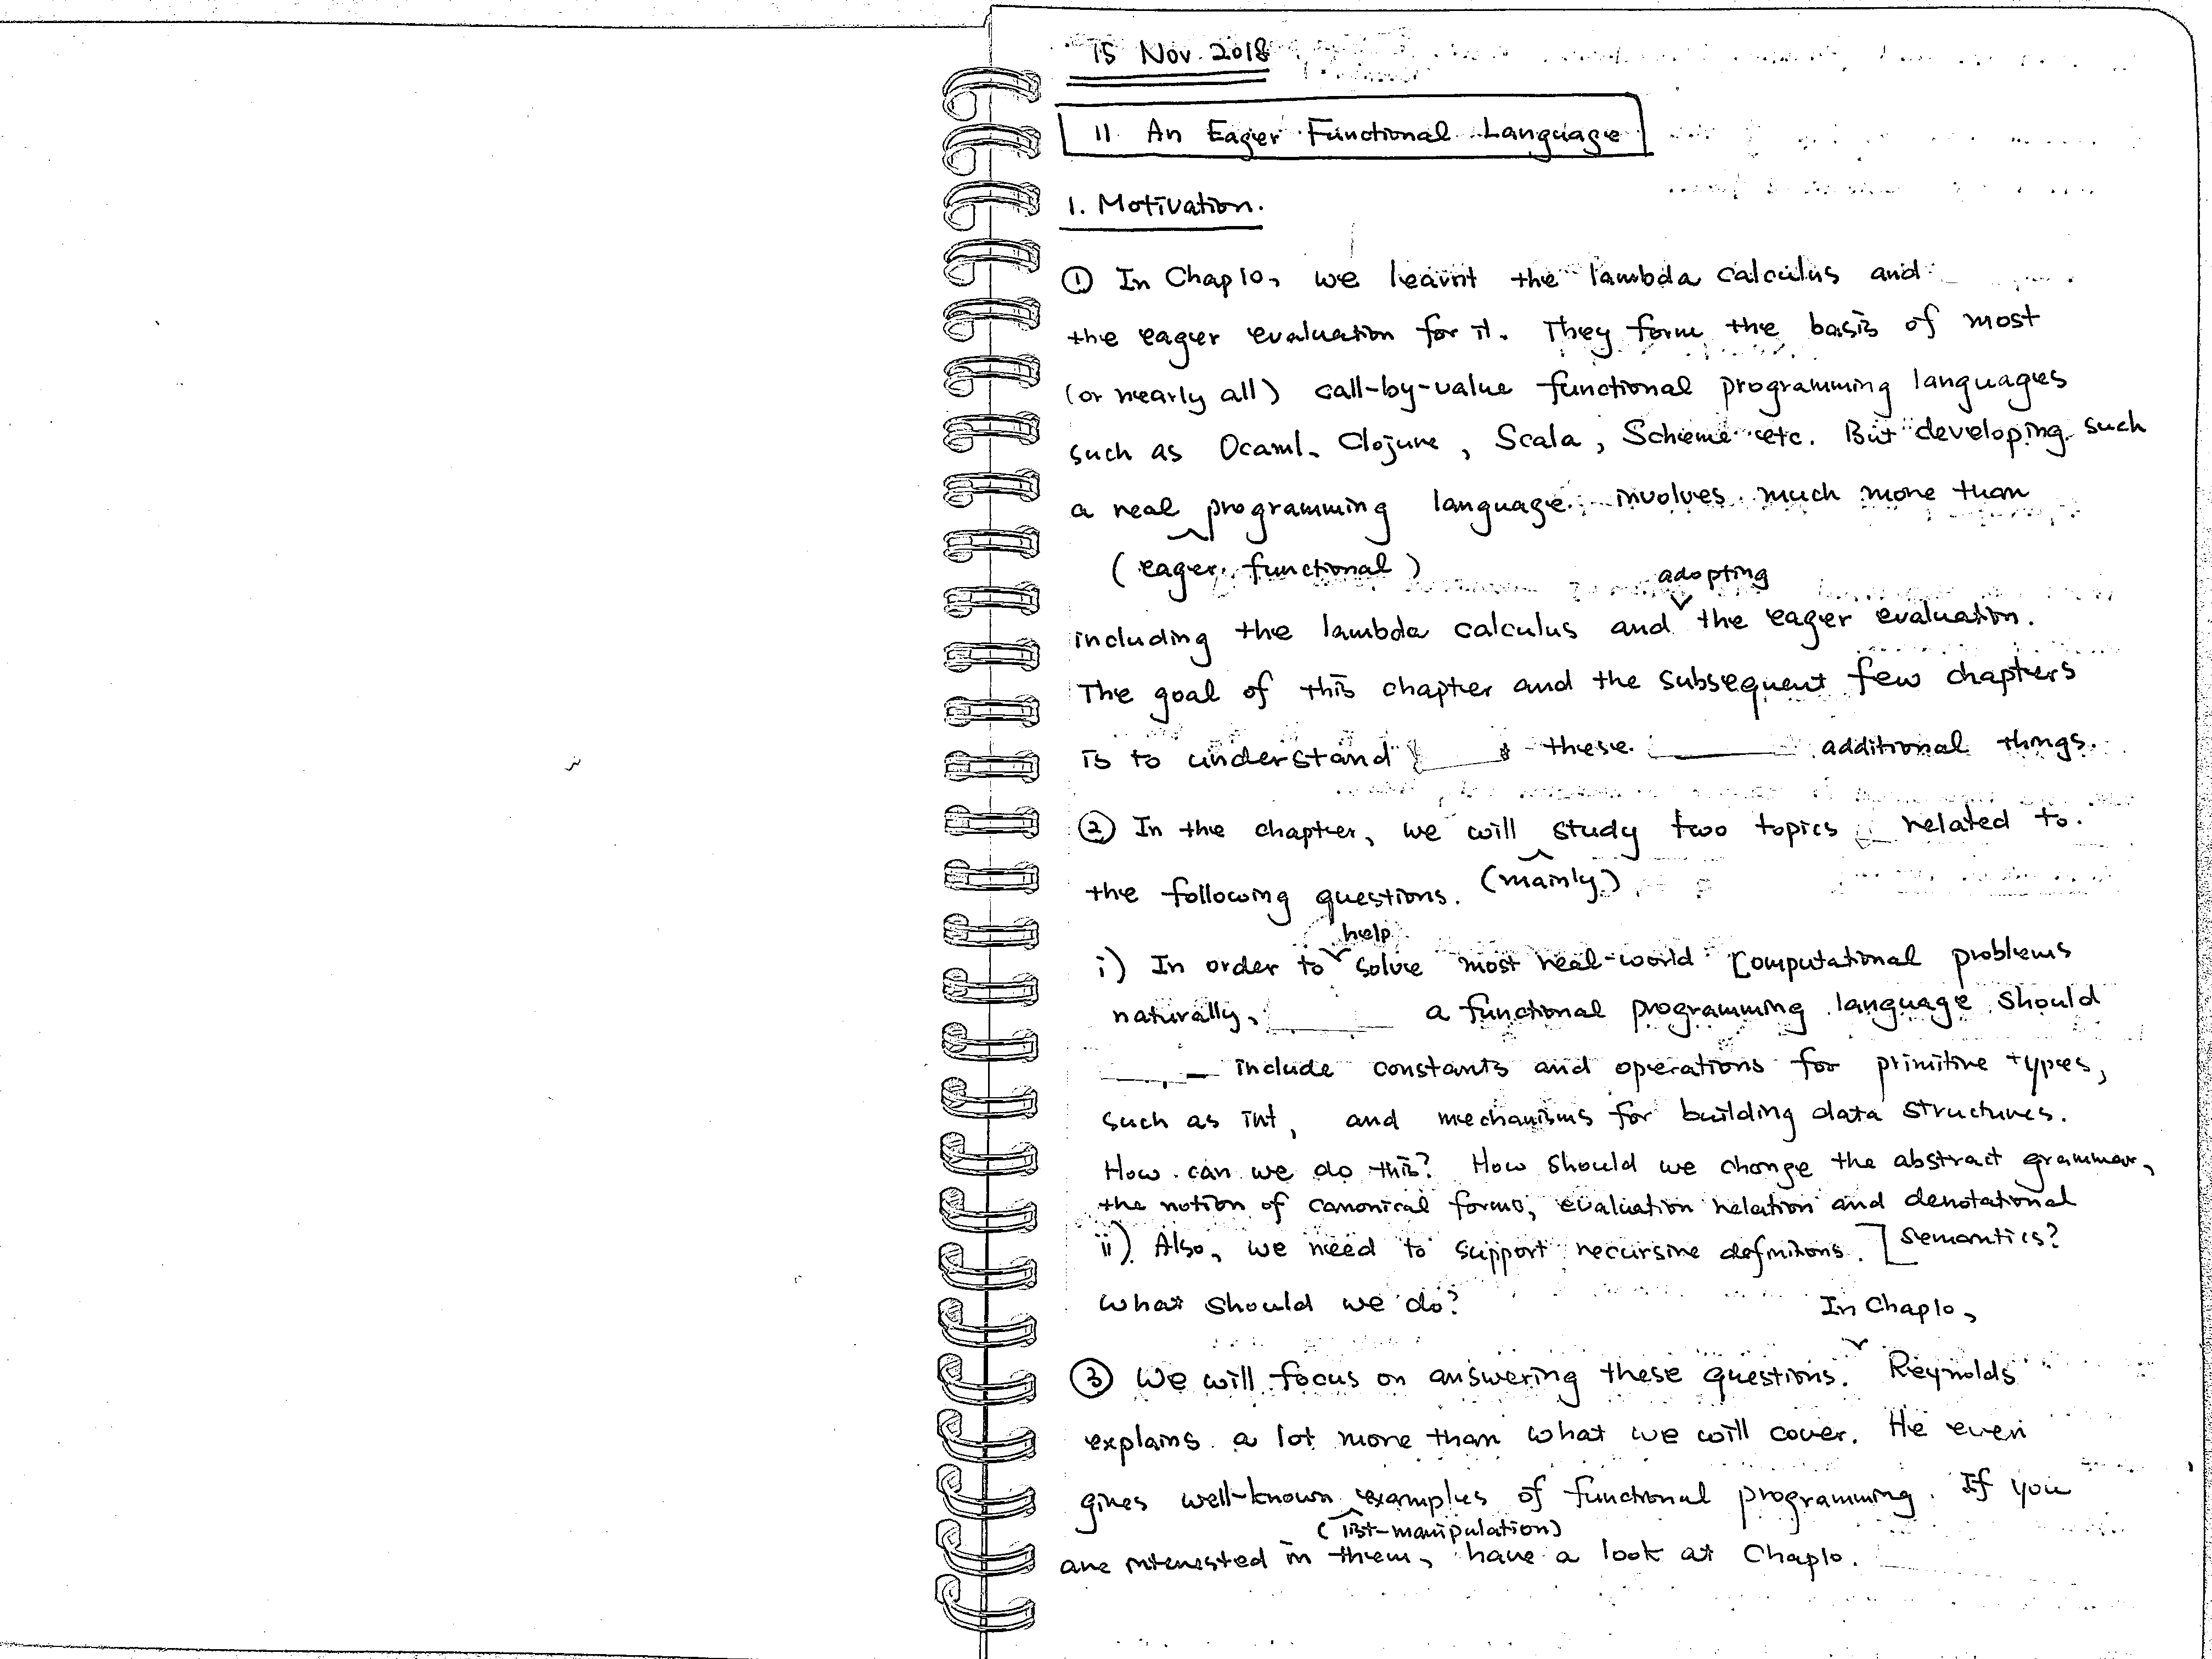 15 Nov. 2018
11. An Eager Functional Language
1. Motivation.
① In Chap10, we learnt the lambda calculus and
the eager evaluation for it. They form the basis of most
(or nearly all) call-by-value functional programming languages
such as Ocaml, Clojure, Scala, Scheme etc. But developing such
a real programming language involves much more than
(eager functional)
adopting
including the lambda calculus and the eager evaluation.
The goal of this chapter and the subsequent few chapters
is to understand these additional things.
② In the chapter, we will study two topics related to
the following questions. (mainly)
help
i) In order to solve most real-world computational problems
naturally, a functional programming language should
include constants and operations for primitive types,
such as int, and mechanisms for building data structures.
How can we do this? How should we change the abstract grammar,
the notion of canonical forms, evaluation relation and denotational
semantics?
ii) Also, we need to support recursive definitions.
What should we do?
In Chap10,
③ We will focus on answering these questions. Reynolds
explains a lot more than what we will cover. He even
gives well-known examples of functional programming. If you
(list-manipulation)
are interested in them, have a look at Chap10.